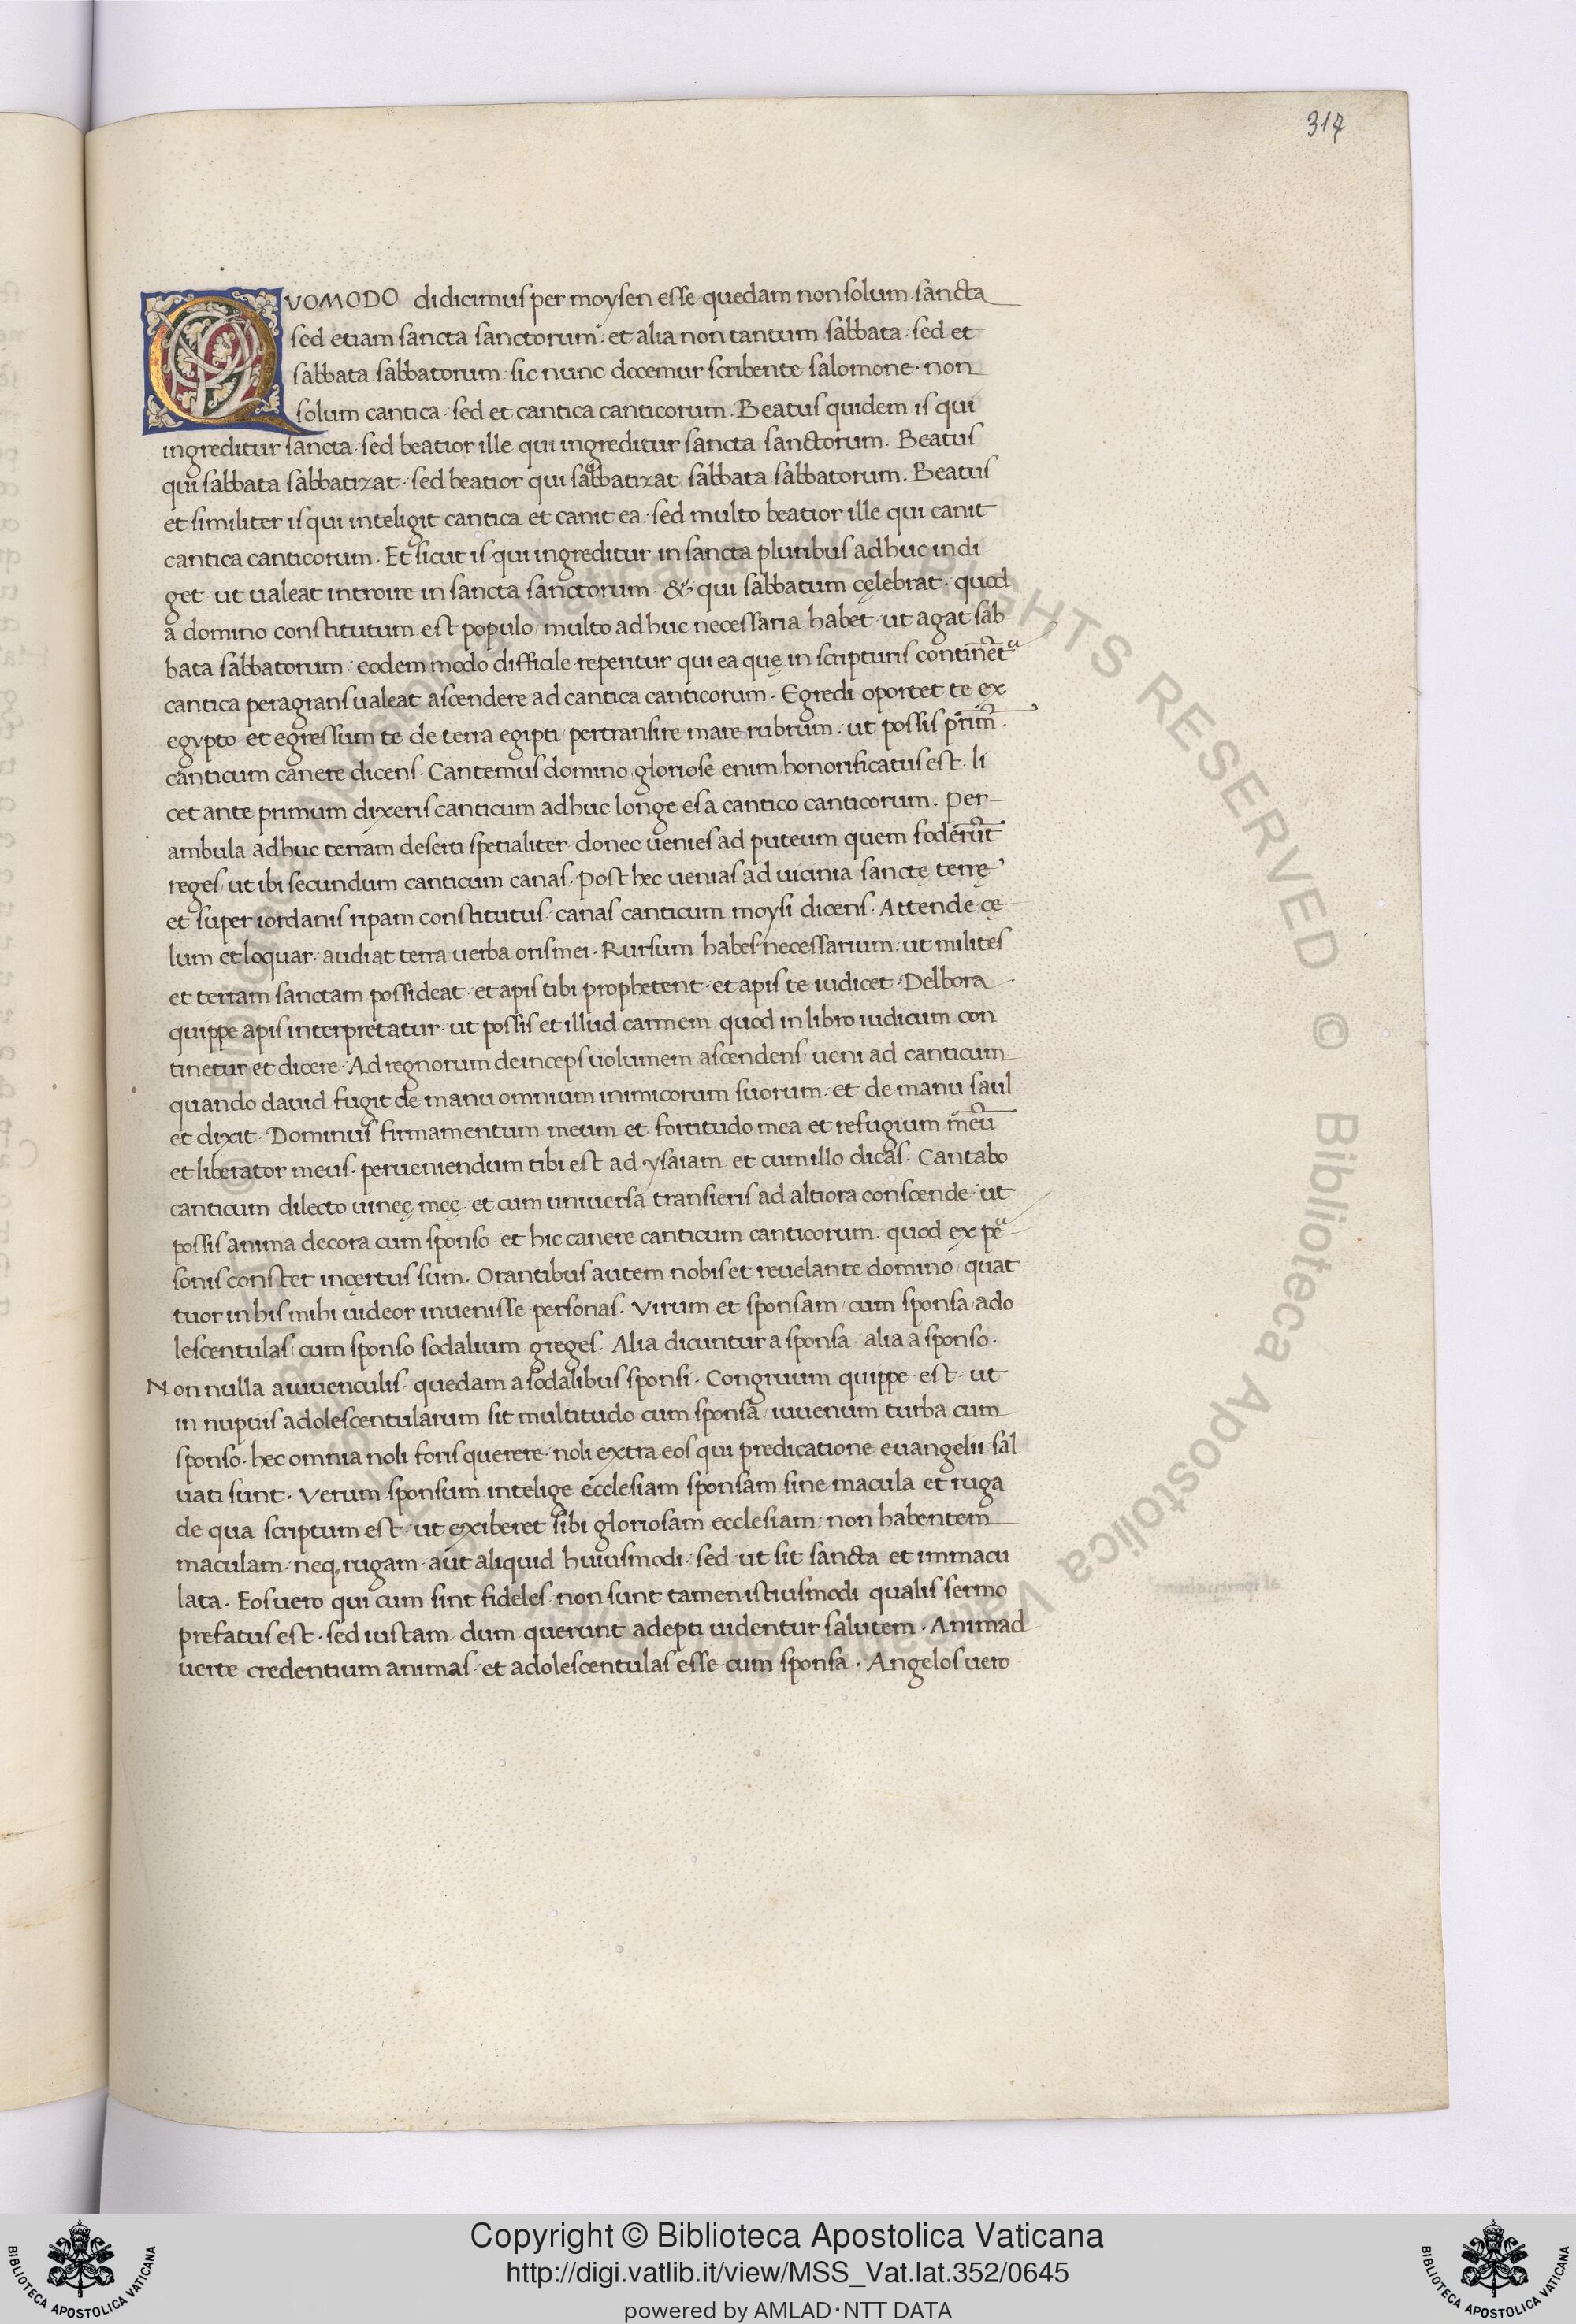 317
QVOMODO didicimus per moysen esse quedam non solum sancta
sed etiam sancta sanctorum· et alia non tantum sabbata· sed et
sabbata sabbatorum· sic nunc docemur scribente salomone· non
solum cantica· sed et cantica canticorum. Beatus quidem is qui
ingreditur sancta· sed beatior ille qui ingreditur sancta sanctorum. Beatus
qui sabbata sabbatizat· sed beatior qui sabbatizat sabbata sabbatorum. Beatus
et similiter is qui inteligit cantica et canit ea· sed multo beatior ille qui canit
cantica canticorum. Et sicut is qui ingreditur in sancta pluribus adhuc indi
get ut ualeat introire in sancta sanctorum· & qui sabbatum cęlebrat· quod
a domino constitutum est populo/ multo adhuc necessaria habet ut agat sab
bata sabbatorum: eodem modo difficile reperitur qui ea quę in scripturis continẽtᵃ
cantica peragrans ualeat ascendere ad cantica canticorum. Egredi oportet te ex
egypto et egressum te de terra egipti/ pertransire mare rubrum· ut possis primᷓ
canticum canere dicens. Cantemus domino gloriose enim honorificatus est· li
cet ante primum dixeris canticum adhuc longe es a cantico canticorum. Per
ambula adhuc terram deserti spetialiter donec uenies ad puteum quem foderūt
reges/ ut ibi secundum canticum canas. Post hec uenias ad uicinia sanctę terrę
et super iordanis ripam constitutus· canas canticum moysi dicens. Attende cę
lum et loquar· audiat terra uerba oris mei. Rursum habes necessarium· ut milites
et terram sanctam possideat· et apis tibi prophetent· et apis te iudicet· Delbora
quippe apis interpretatur· ut possis et illud carmem quod in libro iudicum con
tinetur et dicere· Ad regnorum deinceps uolumem ascendens/ ueni ad canticum
quando dauid fugit de manu omnium inimicorum suorum· et de manu saul
et dixit· Dominus firmamentum meum et fortitudo mea et refugium meū
et liberator meus. perueniendum tibi est ad ysaiam et cum illo dicas. Cantabo
canticum dilecto uineę meę· et cum uniuersa transieris ad altiora conscende· ut
possis anima decora cum sponso et hic canere canticum canticorum· quod ex peᵃ
sonis constet incęrtus sum. Orantibus autem nobis et reuelante domino/ quat
tuor in his mihi uideor inuenisse personas. Virum et sponsam/ cum sponsa/ ado
lescentulas/ cum sponso sodalium greges. Alia dicuntur a sponsa/ alia a sponso.
Non nulla a iuuenculis· quedam a sodalibus sponsi. Congruum quippe est· ut
in nuptiis adolescentularum sit multitudo cum sponsa/ iuuenum turba cum
sponso· hec omnia noli foris querere· noli extra eos qui predicatione euangelii sal
uati sunt. Verum sponsum intelige ecclesiam sponsam sine macula et ruga
de qua scriptum est· ut exiberet sibi gloriosam ecclesiam· non habentem
maculam· neq; rugam· aut aliquid huiusmodi· sed ut sit sancta et immacu
lata. Eos uero qui cum sint fideles non sunt tamen istiusmodi qualis sermo
prefatus est· sed iustam dum querunt adepti uidentur salutem· Animad
uerte credentium animas· et adolescentulas esse cum sponsa· Angelos uero
Copyright © Biblioteca Apostolica Vaticana
http://digi.vatlib.it/view/MSS_Vat.lat.352/0645
powered by AMLAD·NTT DATA